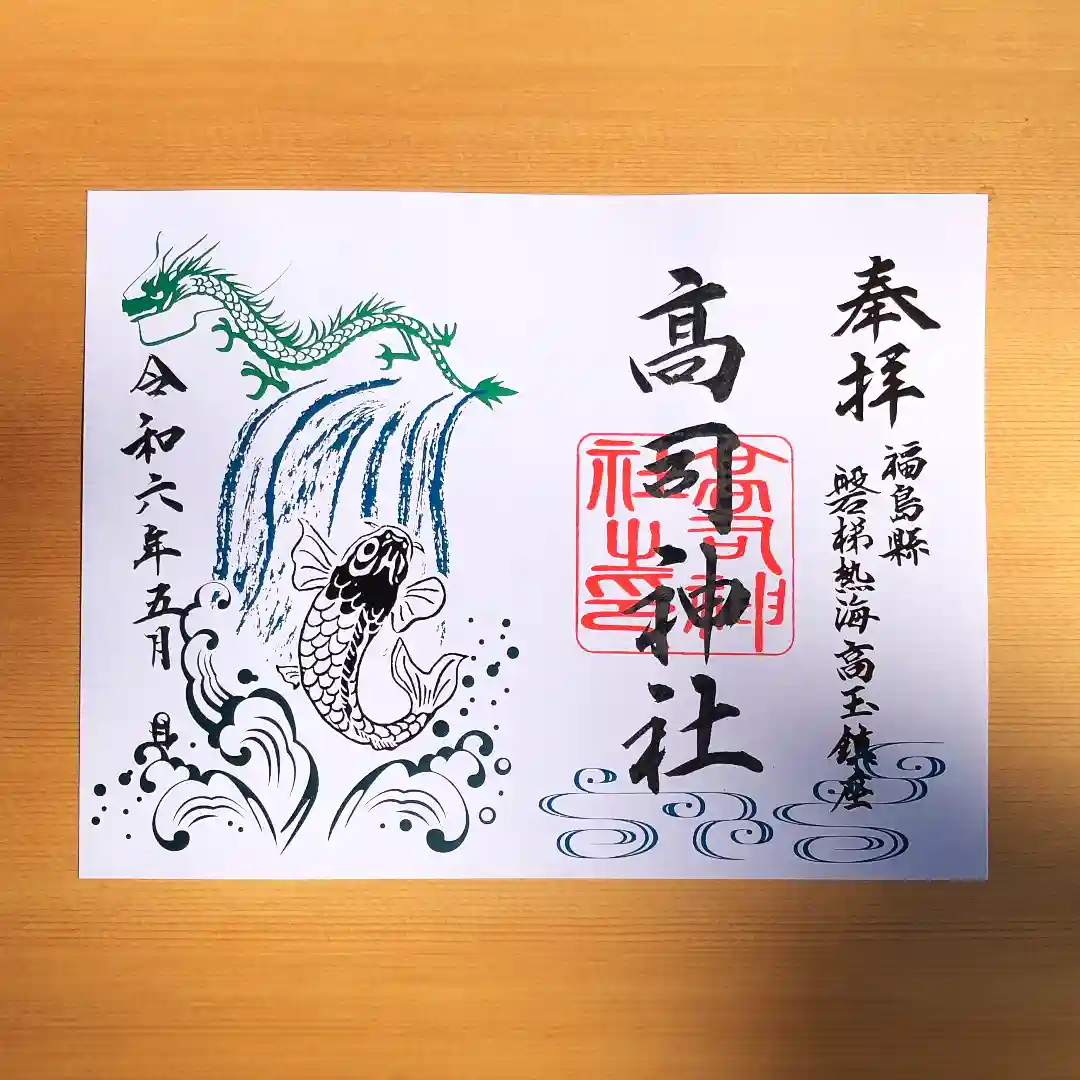 奉拝
福島縣
磐梯熱海高玉鎮座
高司神社
高司神社之印
令和六年五月
日